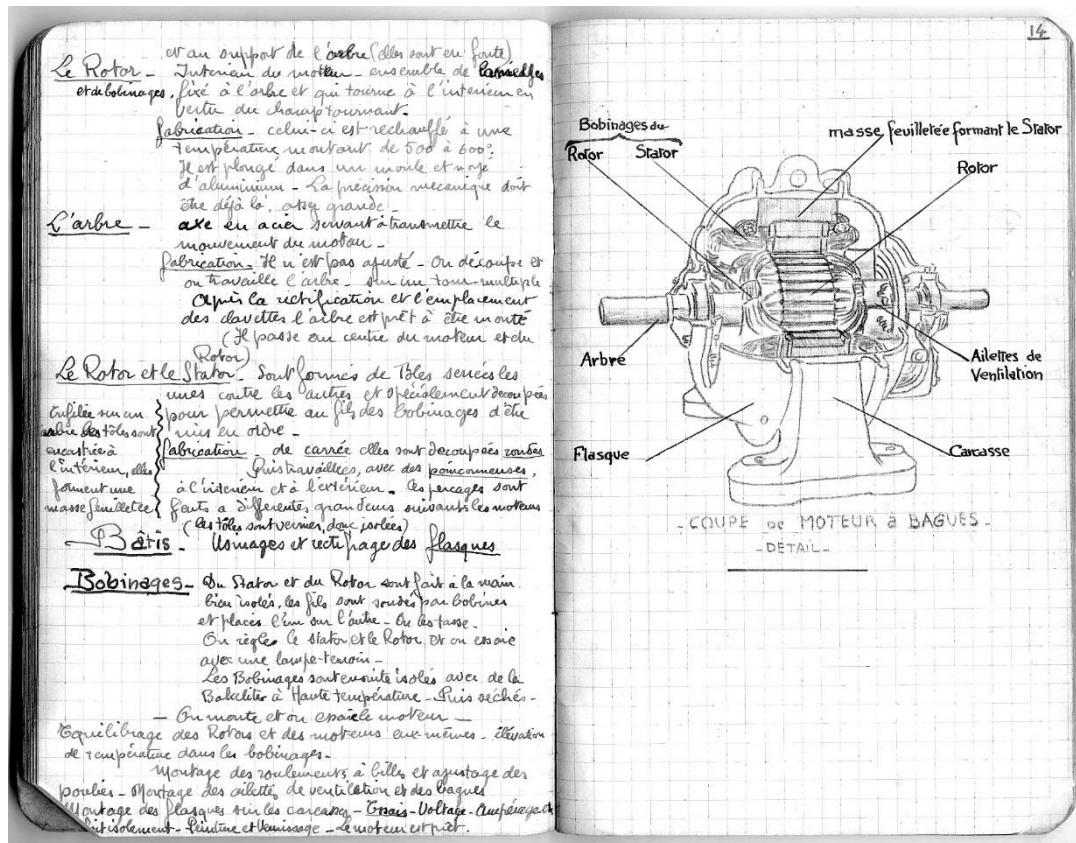 et au support de l'arbre (elles sont en fonte)
Le Rotor - Interieur du moteur - ensemble de
et de bobinages, fixé à l'arbre et qui tourne à l'interieur en
vertu du champ tournant.
fabrication - celui-ci est rechauffé à une
température montant de 500 à 600°.
Il est plongé dans un moule et
d'aluminium - La précision mecanique doit
être déjà là, assez grande -
L'arbre - axe en acier servant à transmettre le
mouvement du moteur -
fabrication - Il n'est pas ajusté - On découpe et
on travaille l'arbre - sur un tour multiple
Après la rectification et l'emplacement
des clavettes l'arbre est prêt à être monté
(Il passe au centre du moteur et du
Rotor)
Le Rotor et le Stator - Sont formés de Tôles serrées les
unes contre les autres et spécialement découpées
pour permettre au fils des bobinages d'être
mis en ordre -
Enfilée sur un
arbre les tôles sont
encastrée à
l'intérieur, elles
forment une
masse feuilletée
fabrication - de carrée elles sont découpées rondes
Puis travaillées, avec des poinçonneuses,
à l'interieur et à l'extérieur - les perçages sont
faits a differentes grandeurs suivants les moteurs
(les tôles sont vernier, donc isolées)
Bâtis - Usinages et rectifiage des flasques
Bobinages - Du Stator et du Rotor sont fait à la main
bien isolés, les fils sont soudés par bobines
et placés l'un sur l'autre - On les tasse -
On règle le stator et le Rotor et on essaie
avec une lampe-temoin -
Les Bobinages sont ensuite isolés avec de la
Bakeliter à Haute température - Puis séchés -
- On monte et on essaie le moteur -
Equilibrage des Rotors et des moteurs eux-mêmes - élévation
de température dans les bobinages -
Montage des roulements à billes et ajustage des
poulies - Montage des ailettes de ventilation et des bagues
Montage des flasques sur les carcasses - Essais - Voltage - Ampérage
isolement - Peinture et Vernissage - Le moteur est prêt.
14
Bobinages du
Rotor Stator
masse feuilletée formant le Stator
Rotor
Arbre
Ailettes de
Ventilation
Flasque
Carcasse
- COUPE de MOTEUR à BAGUES -
- DETAIL -